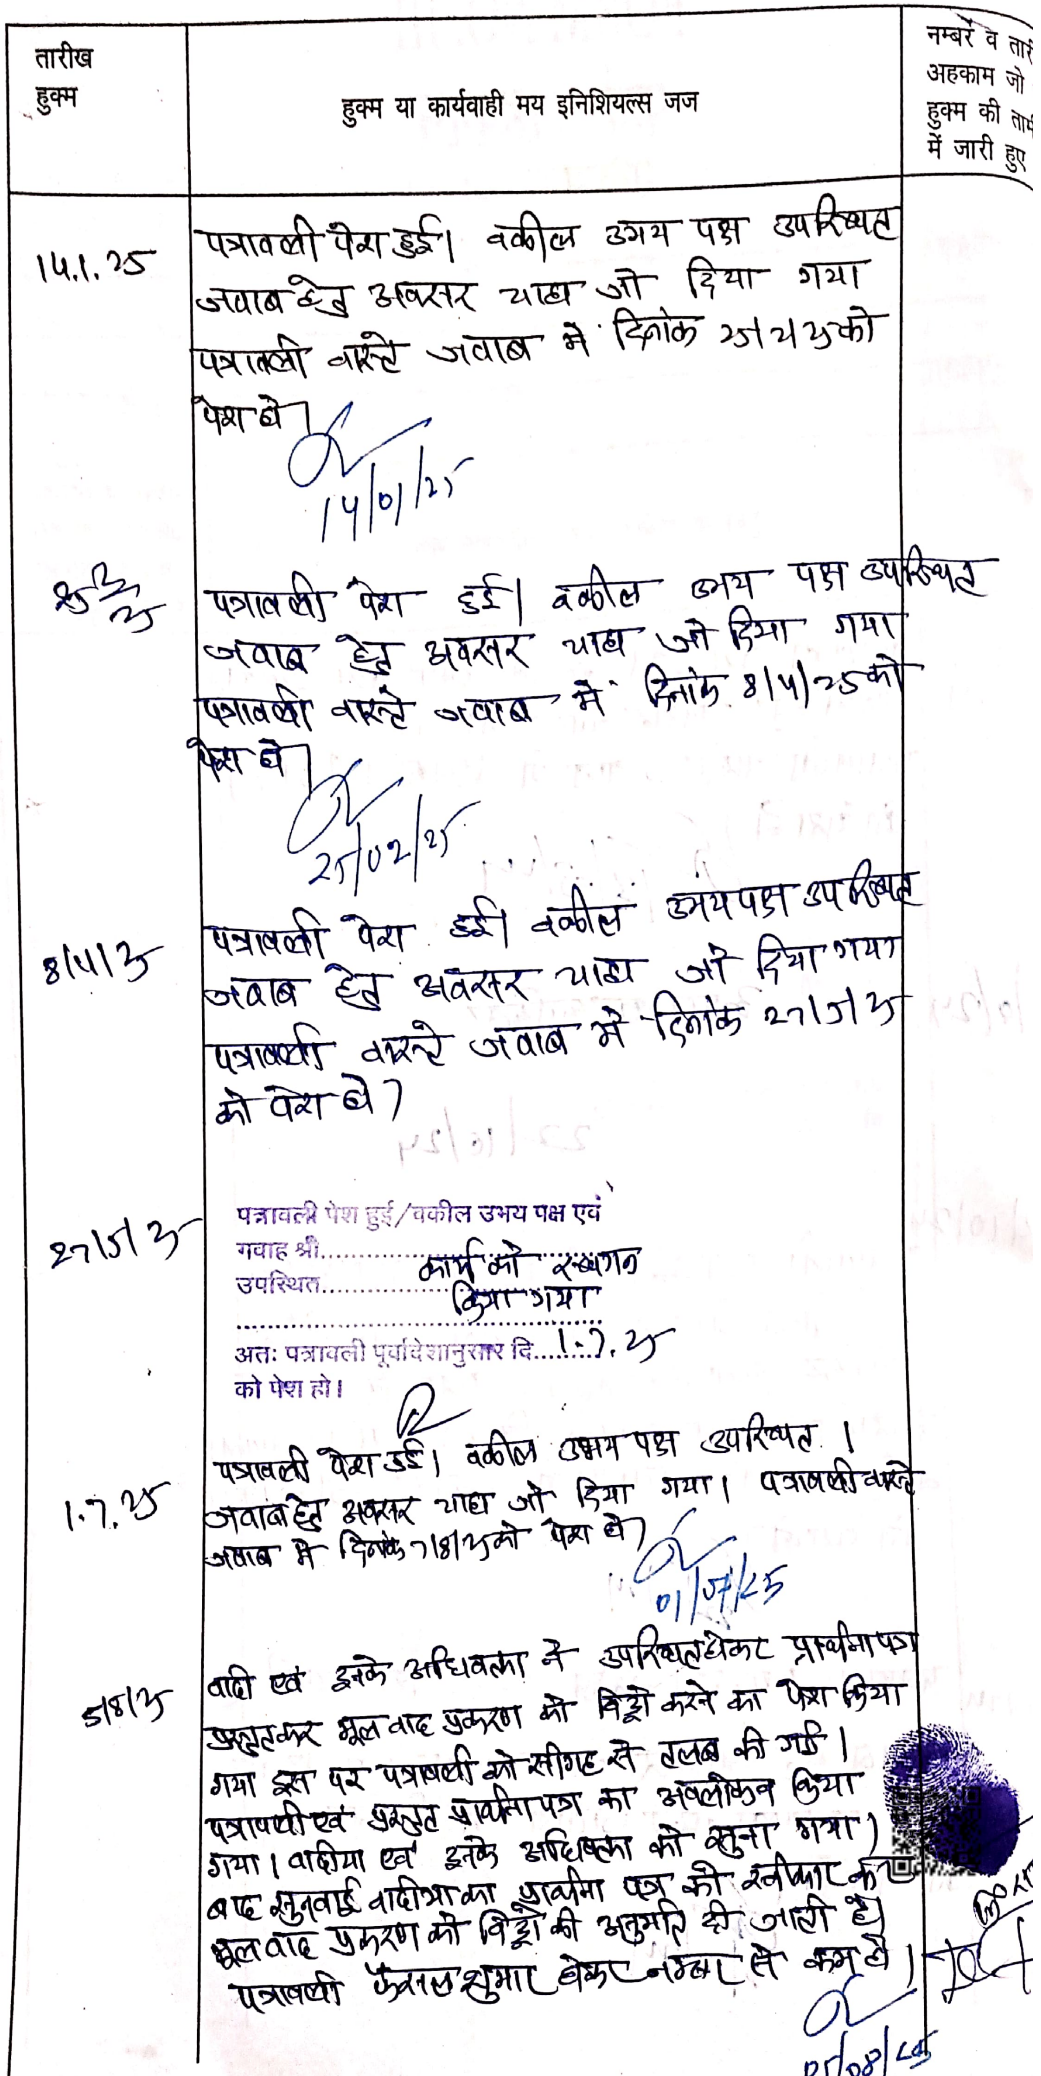 तारीख
हुक्म
हुक्म या कार्यवाही मय इनिशियल्स जज
नम्बर व तारी
अहकाम जो
हुक्म की ताम
में जारी हुए
14.1.25
पत्रावली पेश हुई। वकील उभय पक्ष उपस्थित
जवाब हेतु अवसर चाहा जो दिया गया
पत्रावली वास्ते जवाब में दिनांक 25/2/25 को
पेश हो।
14/01/25
25/2/25
पत्रावली पेश हुई। वकील उभय पक्ष उपस्थित
जवाब हेतु अवसर चाहा जो दिया गया
पत्रावली वास्ते जवाब में दिनांक 8/4/25 को
पेश हो।
25/02/25
8/4/25
पत्रावली पेश हुई। वकील उभय पक्ष उपस्थित
जवाब हेतु अवसर चाहा जो दिया गया
पत्रावली वास्ते जवाब में दिनांक 27/5/25
को पेश हो।
27/5/25
पत्रावली पेश हुई/वकील उभय पक्ष एवं
गवाह श्री
उपस्थित कार्य को स्थगन
किया गया
अतः पत्रावली पूर्वादेशानुसार दि. 1.7.25
को पेश हो।
1.7.25
पत्रावली पेश हुई। वकील उभय पक्ष उपस्थित।
जवाब हेतु अवसर चाहा जो दिया गया। पत्रावली वास्ते
जवाब में दिनांक 7/8/25 को पेश हो।
01/07/25
5/8/25
वादी एवं इनके अधिवक्ता ने उपस्थित होकर प्रार्थना पत्र
प्रस्तुत कर मूल वाद प्रकरण को विड्रो करने का पेश किया
गया इस पर पत्रावली को सीगह से तलब की गई।
पत्रावली एवं प्रस्तुत प्रार्थना पत्र का अवलोकन किया
गया। वादीया एवं इनके अधिवक्ता को सुना गया।
बाद सुनवाई वादीया का प्रार्थना पत्र को स्वीकार कर
मूल वाद प्रकरण को विड्रो की अनुमति दी जाती है।
पत्रावली फैसल शुमार होकर नम्बर से कम हो।
05/08/25